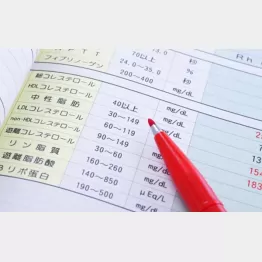 70以上 %
P T T 24.0~35.0 秒
フィブリノーゲン 200~400 mg/dL
総コレステロール
HDLコレステロール 40以上 mg/dL
中性脂肪 30~149 mg/dL
LDLコレステロール 60~119
non-HDLコレステロール 90~149
遊離コレステロール 30~60 mg/dL
リン脂質 160~260 mg/dL
遊離脂肪酸 140~850 μEq/L
リポ蛋白 190~500 mg/dL